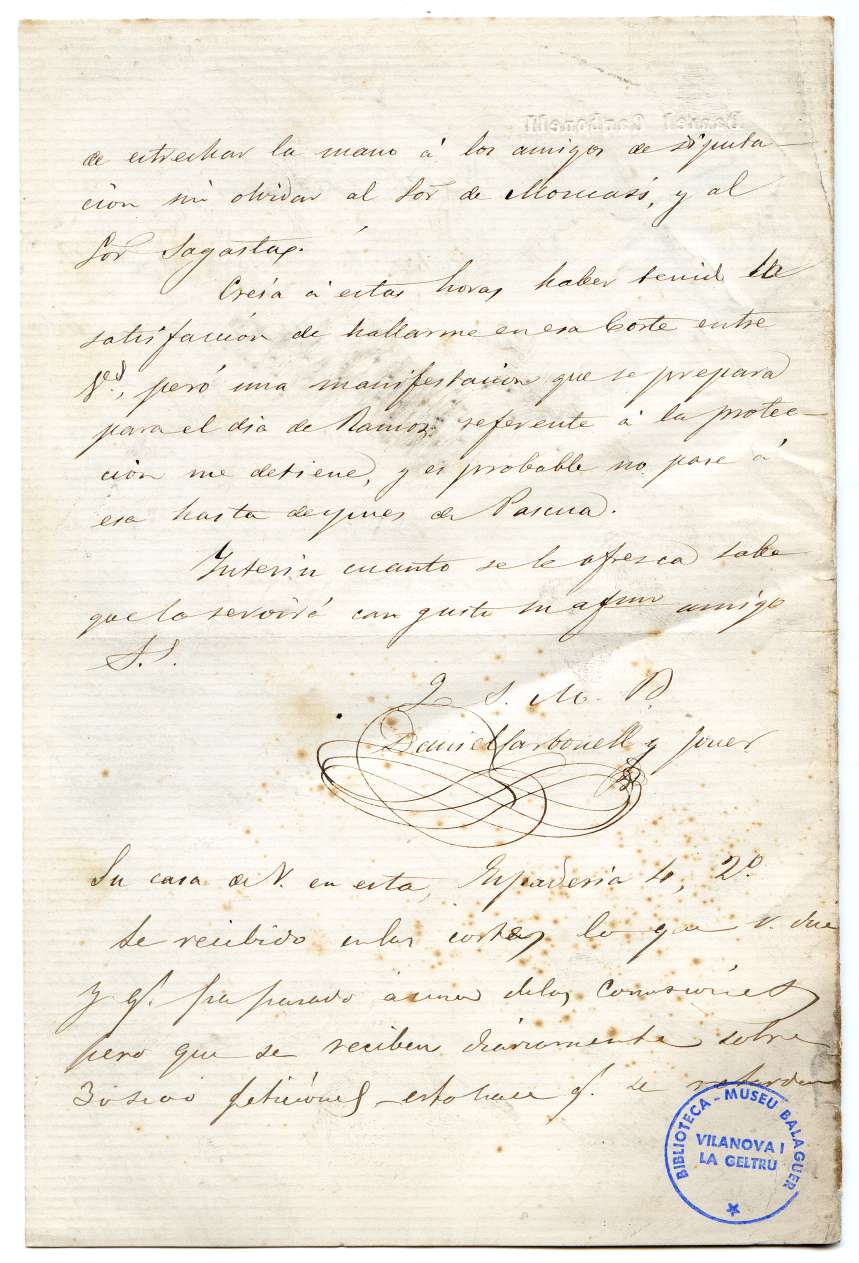 Daniel Carbonell
de estrechar la mano á los amigos de diputa-
ción sin olvidar al Sor. de Moncasi, y al
Sor. Sagasta.
Creía á estas horas haber tenid la
satisfacción de hallarme en esa Corte entre
Vd., peró una manifestacion que se prepara
para el dia de Ramos, referente á la protec-
ción me detiene, y es probable no pase á
esa hasta despues de Pascua.
Interin cuanto se le ofresca sabe
que lo servirá con gusto su afmo amigo
S. S.
Q. S. M. B
Daniel Carbonell y Jover
Su casa de V. en esta, Espaderia 4, 2º
Se recibido en las cortes lo que V. dice
y q. ha pasado á una de las Comisiones
pero que se reciben diariamente sobre
peticiones - esto hace q. se retarden
BIBLIOTECA - MUSEU BALAGUER
VILANOVA I
LA GELTRU